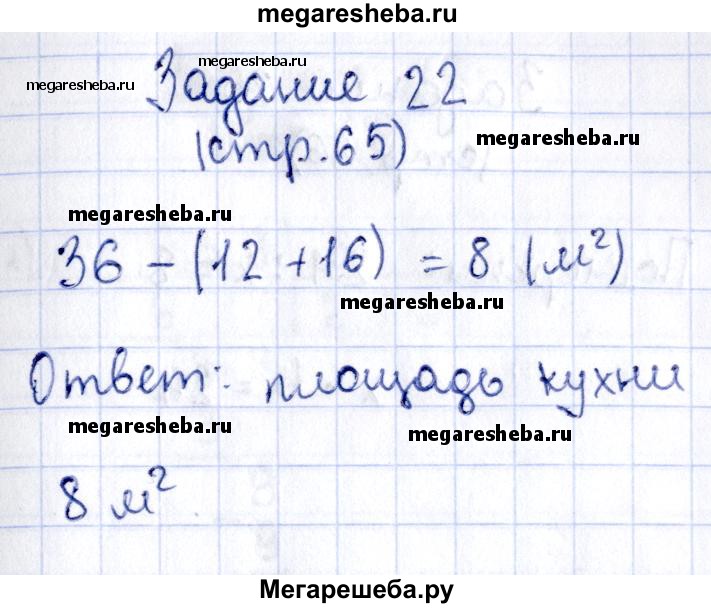 megaresheba.ru
Задание 22
megaresheba.ru
megaresheba.ru
(стр.65)
megaresheba.ru
megaresheba.ru
36 - (12 + 16) = 8 (м²)
megaresheba.ru
Ответ: площадь кухни
megaresheba.ru
megaresheba.ru
8 м²
Мегарешеба.ру